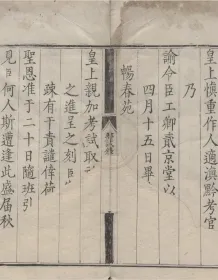 皇上慎重作人適滇黔考官
乃
諭令臣工卿貳京堂以
四月十五日畢
暢春苑
皇上親加考試取
之進呈之刻臣
疎有于責譴倖荷
聖恩准于二十日隨班引
見臣何人斯遭逢此盛屆秋